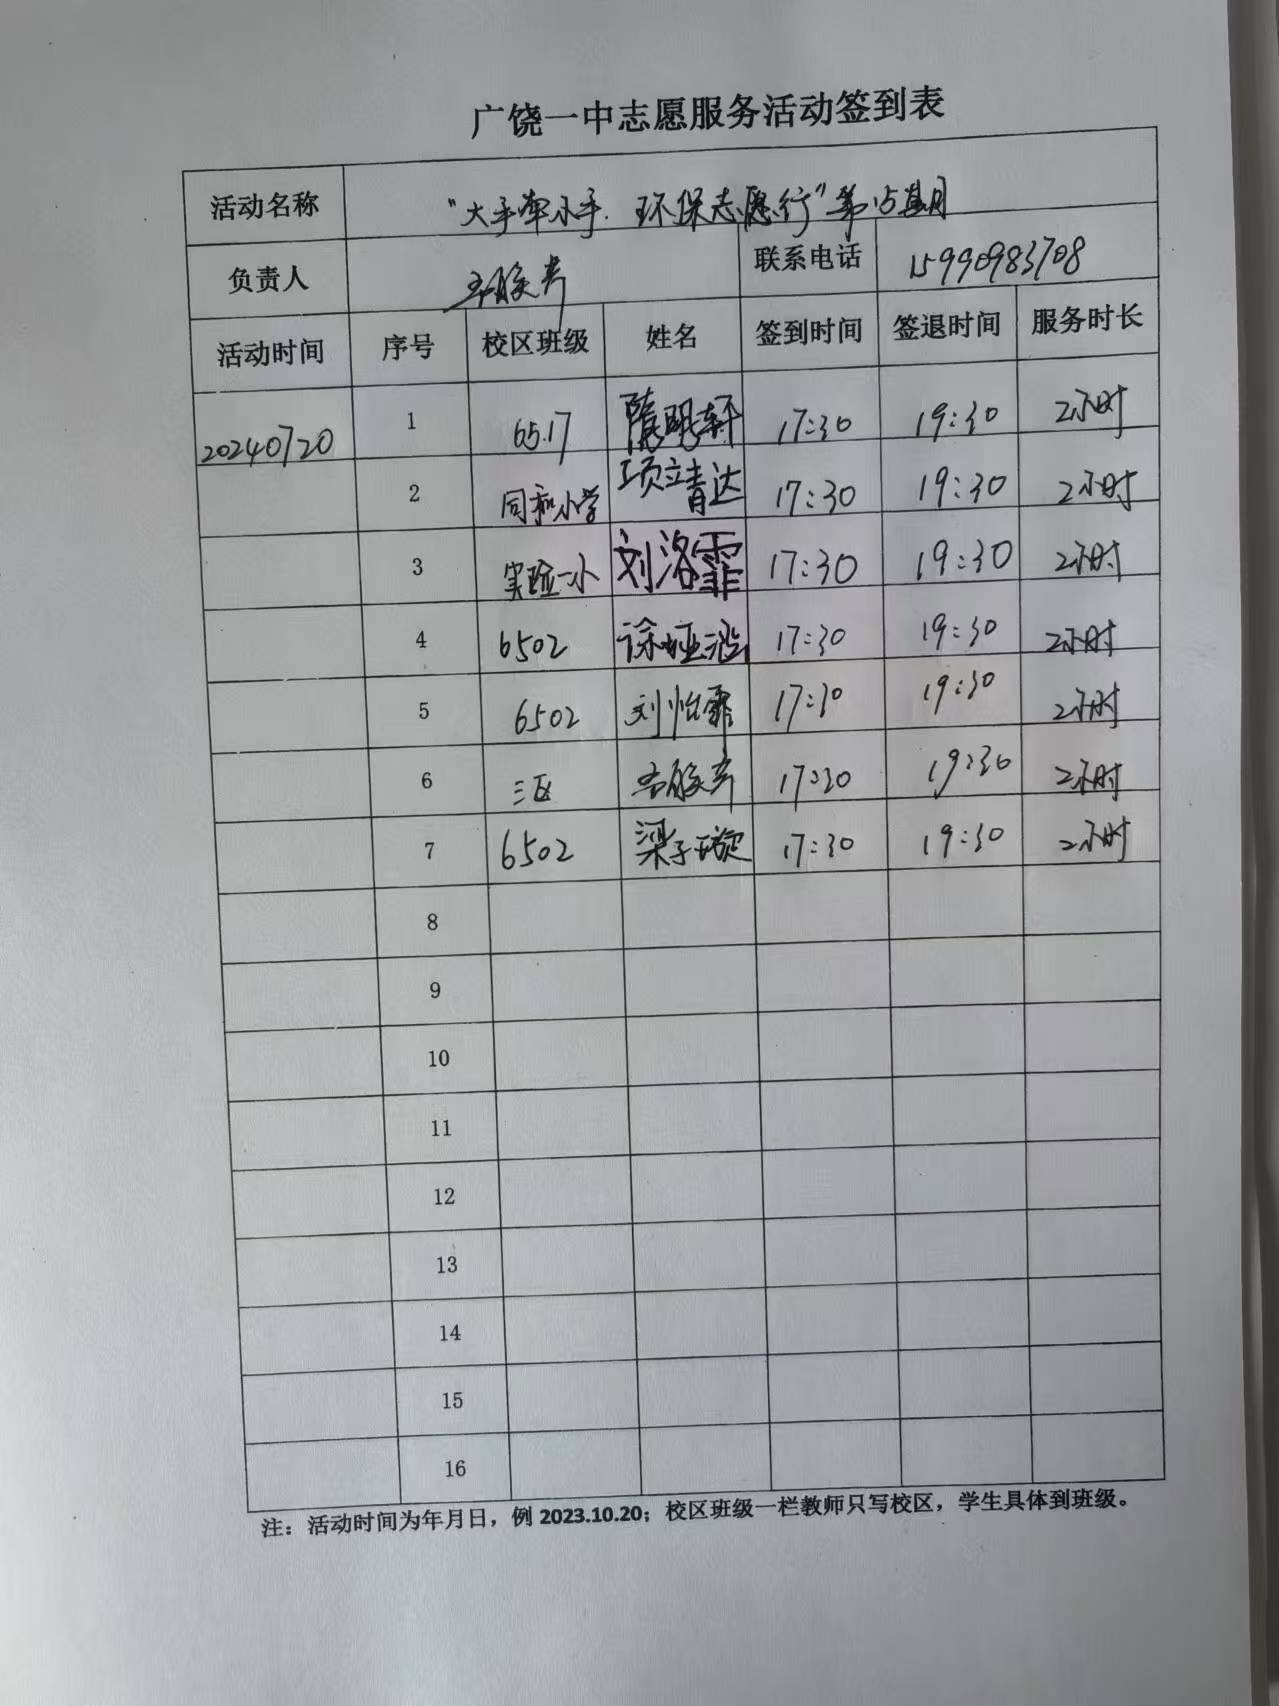 广饶一中志愿服务活动签到表
活动名称 "大手牵小手.环保志愿行"第15期
负责人 联系电话 15990983708
活动时间 序号 校区班级 姓名 签到时间 签退时间 服务时长
20240720 1 65.17 隋明轩 17:30 19:30 2小时
2 同和小学 项靖达 17:30 19:30 2小时
3 实验一小 刘洛霏 17:30 19:30 2小时
4 6502 17:30 19:30 2小时
5 6502 刘怡霏 17:30 19:30 2小时
6 三区 17:30 19:30 2小时
7 6502 梁子璇 17:30 19:30 2小时
8
9
10
11
12
13
14
15
16
注：活动时间为年月日，例 2023.10.20；校区班级一栏教师只写校区，学生具体到班级。